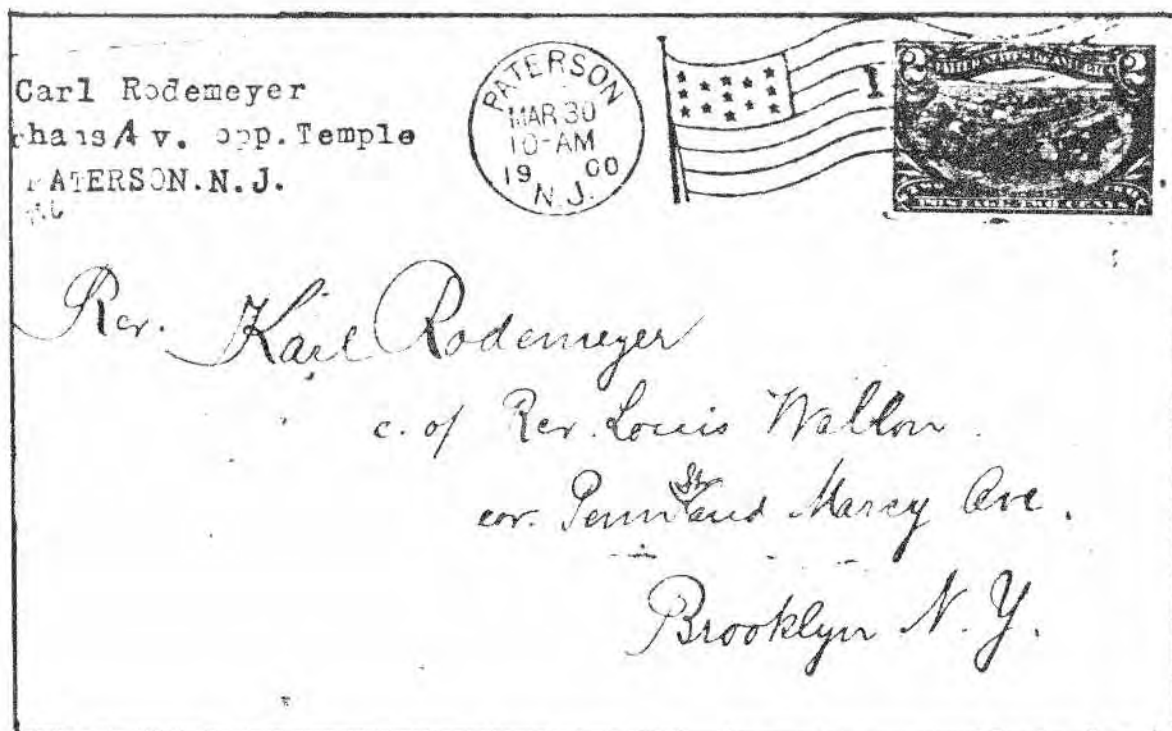 Carl Rodemeyer
hans Av. opp. Temple
PATERSON. N. J.
PATERSON
MAR 30
10-AM
19 00
N. J.
1
2 2
Rev. Karl Rodemeyer
c. of Rev. Louis Wallon
cor. Penn St. and Marcy Ave.
Brooklyn N. Y.